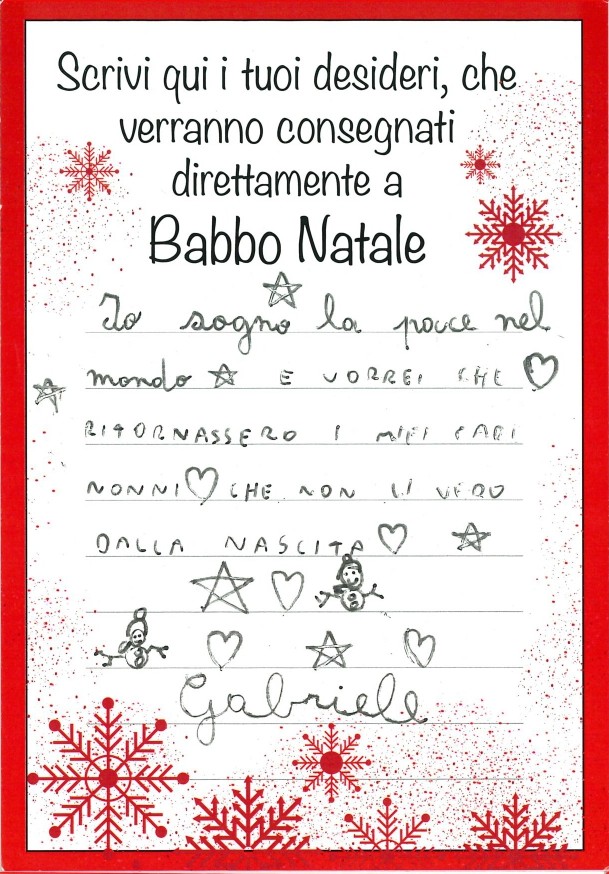 Scrivi qui i tuoi desideri, che
verranno consegnati
direttamente a
Babbo Natale
Io sogno la pace nel
mondo E VORREI CHE
RITORNASSERO I MIEI CARI
NONNI CHE NON LI VEDO
DALLA NASCITA
Gabriele